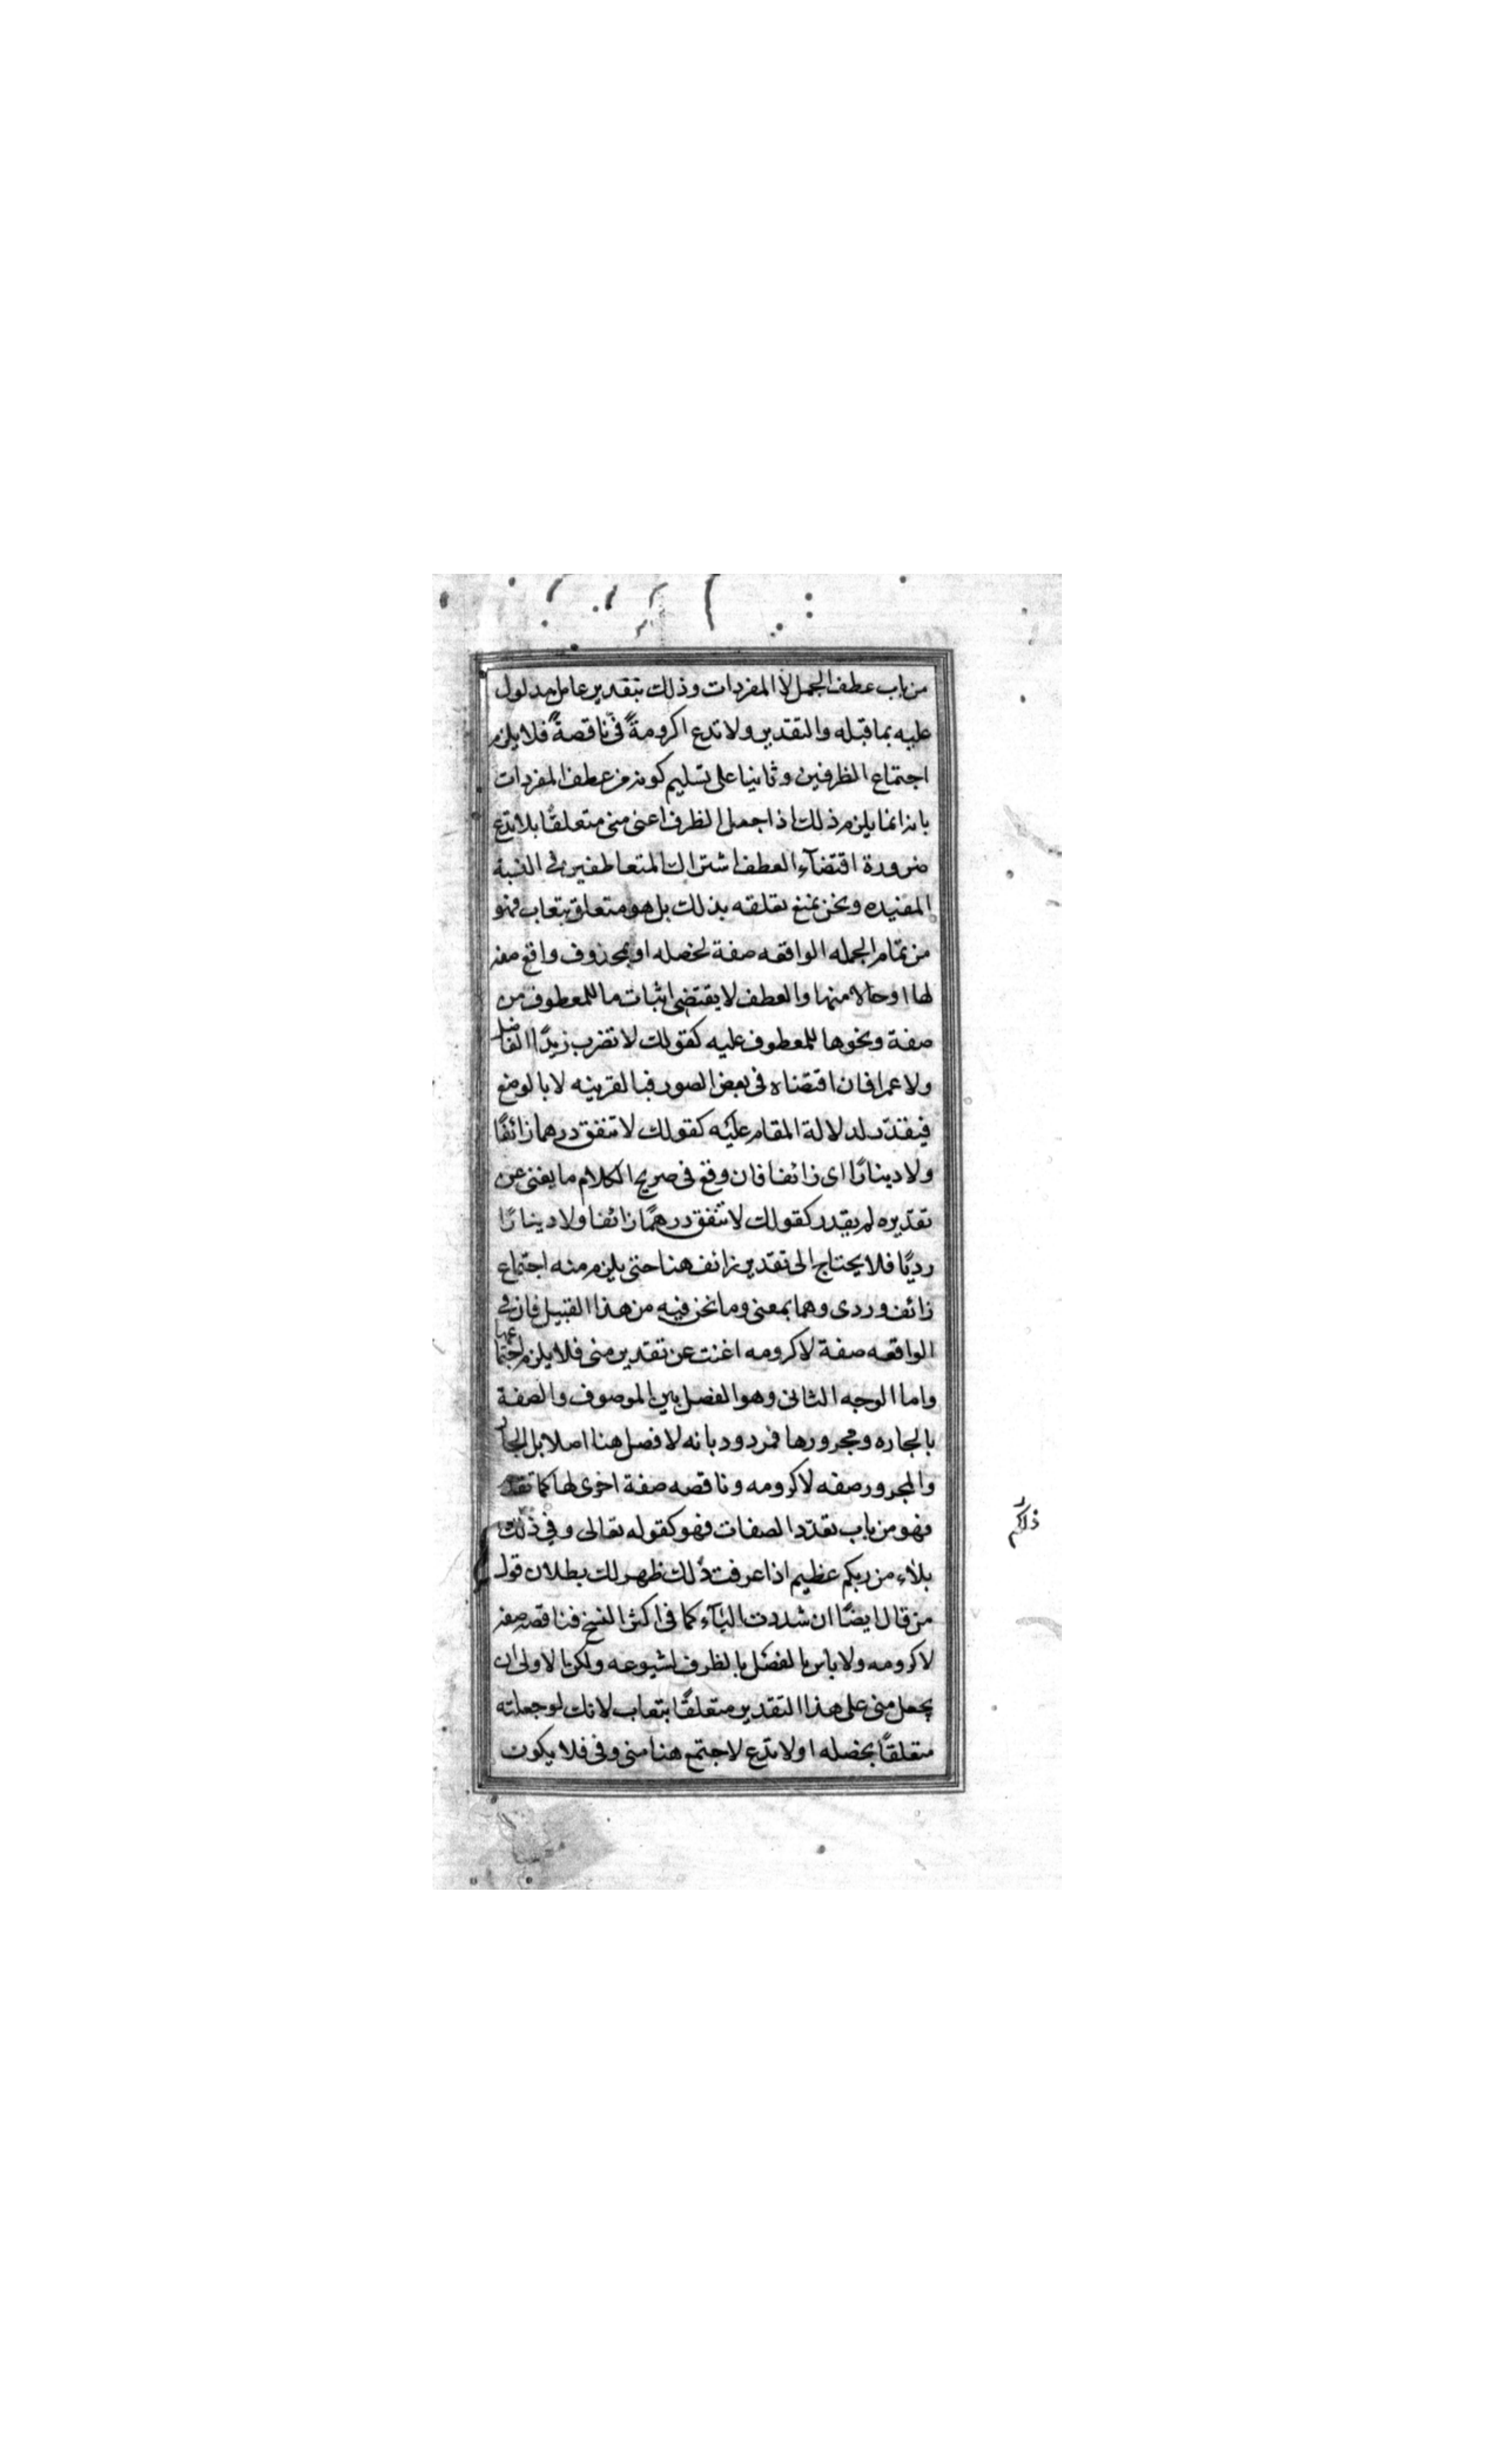 من باب عطف الجمل لا المفردات وذلك بتقدير عامل مدلول
عليه بما قبله والتقدير ولا تدع اكرومةً فيّ ناقصةً فلا يلزم
اجتماع الظرفين وثانيا على تسليم كونه من عطف المفردات
بانه انما يلزم ذلك اذا جعل الظرف اعنى منى متعلقًا بلا تدع
ضرورة اقتضآء العطف اشتراك المتعاطفين فى النسبة
المفيده ونحن نمنع تعلقه بذلك بل هو متعلق بتعاب فهو
من تمام الجمله الواقعه صفة لخصله او بمحذوف واقع صفه
لها او حالا منها والعطف لا يقتضى اثبات ما للمعطوف من
صفة ونحوها للمعطوف عليه كقولك لا تضرب زيدًا الفاضل
ولا عمرا فان اقتضاه فى بعض الصور فبالقرينه لا بالوضع
فيقدّر لدلالة المقام عليه كقولك لا تنفق درهما زائفًا
ولا دينارًا اى زائفا فان وقع فى صريح الكلام ما يغنى عن
تقديره لم يقدر كقولك لا تنفق درهمًا زائفا ولا دينارًا
رديًا فلا يحتاج الى تقدير زائف هنا حتى يلزم منه اجتماع
زائف وردى وهما بمعنى وما نحن فيه من هذا القبيل فان فى
الواقعه صفة لاكرومه اغنت عن تقدير منى فلا يلزم اجتماعهما
واما الوجه الثانى وهو الفصل بين الموصوف والصفة
بالجاره ومجرورها فمردود بانه لا فصل هنا اصلا بل الجار
والمجرور صفه لاكرومه وناقصه صفة اخرى لها كما تقدم
فهو من باب تعدّد الصفات فهو كقوله تعالى وفي ذلك
ذلكم
بلاء من ربكم عظيم اذا عرفت ذلك ظهر لك بطلان قول
من قال ايضًا ان شددت اليآء كما فى اكثر النسخ فناقصه صفه
لاكرومه ولا باس بالفصل بالظرف لشيوعه ولكن الاولى ان
يجعل منى على هذا التقدير متعلقًا بتعاب لانك لو جعلته
متعلقًا بخصله او لا تدع لاجتمع هنا منى وفى فلا يكون